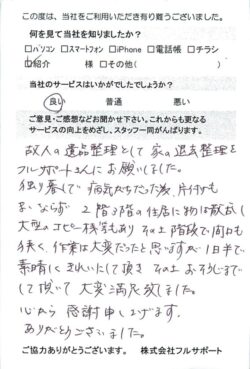 この度は、当社をご利用いただき有り難うございました。
何を見て当社を知りましたか？
□パソコン □スマートフォン □iPhone □電話帳 □チラシ
□紹介 様 □その他( )
当社のサービスはいかがでしたでしょうか？
良い 普通 悪い
ご意見・ご感想などお聞かせ下さい。これからも更なる
サービスの向上をめざし、スタッフ一同がんばります。
故人の遺品整理として家の退去整理を
フルサポートさんにお願いしました。
独り暮しで病気がちだった為、片付けも
ままならず 2階3階の住居に物は散乱し
大型のコピー機等もあり その上階段で間口も
狭く、作業は大変だったと思いますが 1日半で
素晴しくきれいにして頂き その上おそうじまで
して頂いて大変満足致しました。
心から 感謝申し上げます。
ありがとうございました。
ご協力ありがとうございます。 株式会社フルサポート